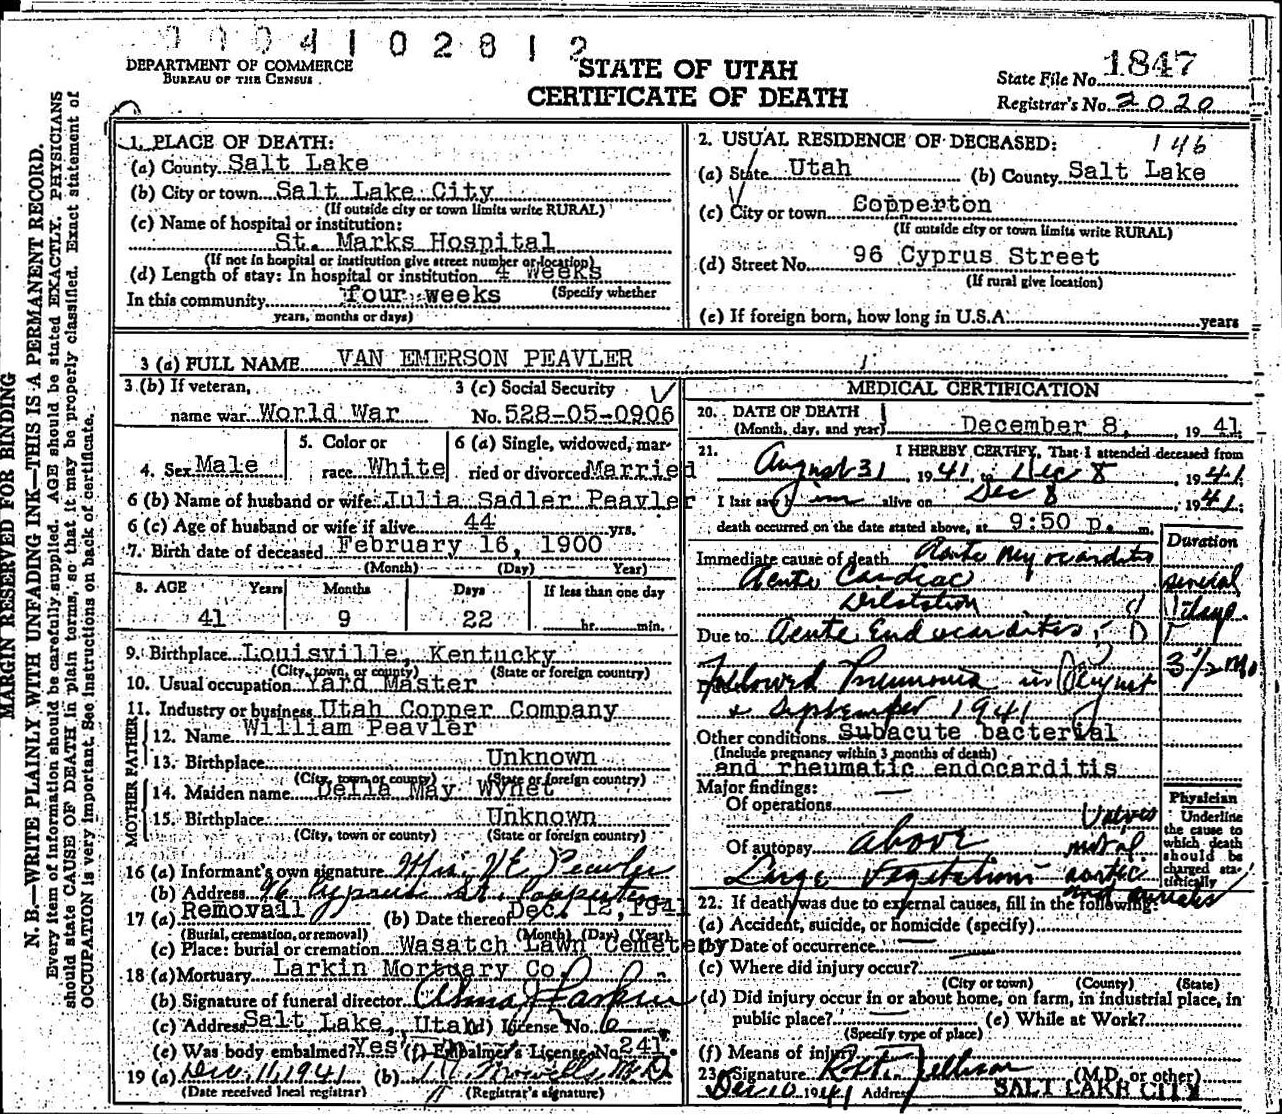 0004102812
DEPARTMENT OF COMMERCE
BUREAU OF THE CENSUS
STATE OF UTAH
CERTIFICATE OF DEATH
State File No. 1847
Registrar's No. 2020
MARGIN RESERVED FOR BINDING
N. B.—WRITE PLAINLY WITH UNFADING INK—THIS IS A PERMANENT RECORD.
Every item of information should be carefully supplied. AGE should be stated EXACTLY. PHYSICIANS
should state CAUSE OF DEATH in plain terms, so that it may be properly classified. Exact statement of
OCCUPATION is very important. See instructions on back of certificate.
1. PLACE OF DEATH:
(a) County Salt Lake
(b) City or town Salt Lake City
(If outside city or town limits write RURAL)
(c) Name of hospital or institution:
St. Marks Hospital
(If not in hospital or institution give street number or location)
(d) Length of stay: In hospital or institution 4 weeks
In this community four weeks (Specify whether
years, months or days)
2. USUAL RESIDENCE OF DECEASED: 146
(a) State Utah (b) County Salt Lake
(c) City or town Copperton
(If outside city or town limits write RURAL)
(d) Street No. 96 Cyprus Street
(If rural give location)
(e) If foreign born, how long in U.S.A. years
3 (a) FULL NAME VAN EMERSON PEAVLER
3.(b) If veteran,
name war World War
3 (c) Social Security
No. 528-05-0906
4. Sex Male
5. Color or
race White
6 (a) Single, widowed, mar-
ried or divorced Married
6 (b) Name of husband or wife Julia Sadler Peavler
6 (c) Age of husband or wife if alive 44 yrs.
7. Birth date of deceased February 16, 1900
(Month) (Day) Year)
8. AGE Years Months Days If less than one day
41 9 22 hr. min.
9. Birthplace Louisville, Kentucky
(City, town, or county) (State or foreign country)
10. Usual occupation Yard Master
11. Industry or business Utah Copper Company
FATHER
12. Name William Peavler
13. Birthplace Unknown
(City, town or county) (State or foreign country)
MOTHER
14. Maiden name Della May Wynet
15. Birthplace Unknown
(City, town or county) (State or foreign country)
16 (a) Informant's own signature Mrs. V E Peavler
(b) Address 96 Cyprus St. Copperton
17 (a) Removall (b) Date thereof Dec. 12, 1941
(Burial, cremation, or removal) (Month) (Day) (Year)
(c) Place: burial or cremation Wasatch Lawn Cemetery
18 (a) Mortuary Larkin Mortuary Co.
(b) Signature of funeral director Alma J Larkin
(c) Address Salt Lake, Utah (d) License No. 6
(e) Was body embalmed? Yes (f) Embalmer's License No. 241
19 (a) Dec. 11, 1941 (b) M.D.
(Date received local registrar) (Registrar's signature)
MEDICAL CERTIFICATION
20. DATE OF DEATH
(Month, day, and year) December 8, 19 41
21. I HEREBY CERTIFY, That I attended deceased from
August 31 19 41 to Dec 8, 19 41
I last saw him alive on Dec 8, 19 41
death occurred on the date stated above, at 9:50 p. m.
Duration
Immediate cause of death Acute Myocarditis
Acute Cardiac several
Dilatation days
Due to Acute Endocarditis
Followed Pneumonia in August 3 1/2 Mo
& September 1941
Other conditions Subacute bacterial
(Include pregnancy within 3 months of death)
and rheumatic endocarditis
Major findings:
Of operations
Of autopsy above Valves mitral
Large Vegetations aortic
Physician
Underline
the cause to
which death
should be
charged sta-
tistically
22. If death was due to external causes, fill in the following:
(a) Accident, suicide, or homicide (specify)
(b) Date of occurrence
(c) Where did injury occur?
(City or town) (County) (State)
(d) Did injury occur in or about home, on farm, in industrial place, in
public place? (e) While at Work?
(Specify type of place)
(f) Means of injury
23. Signature Jellison (M.D. or other)
Dec 10 1941 Address SALT LAKE CITY